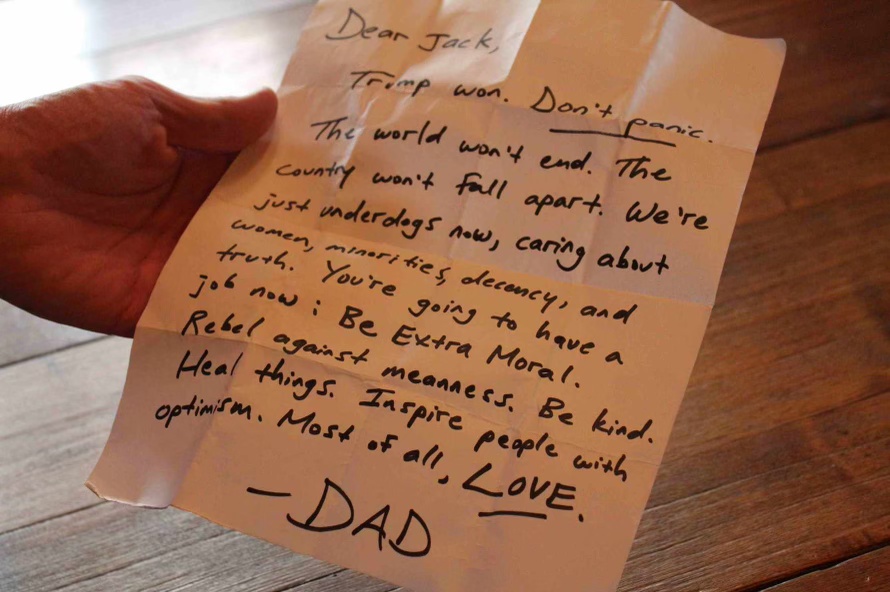 Dear Jack,
Trump won. Don't panic.
The world won't end. The
country won't fall apart. We're
just underdogs now, caring about
women, minorities, decency, and
truth. You're going to have a
job now: Be Extra Moral.
Rebel against meanness. Be kind.
Heal things. Inspire people with
optimism. Most of all, LOVE.
—DAD